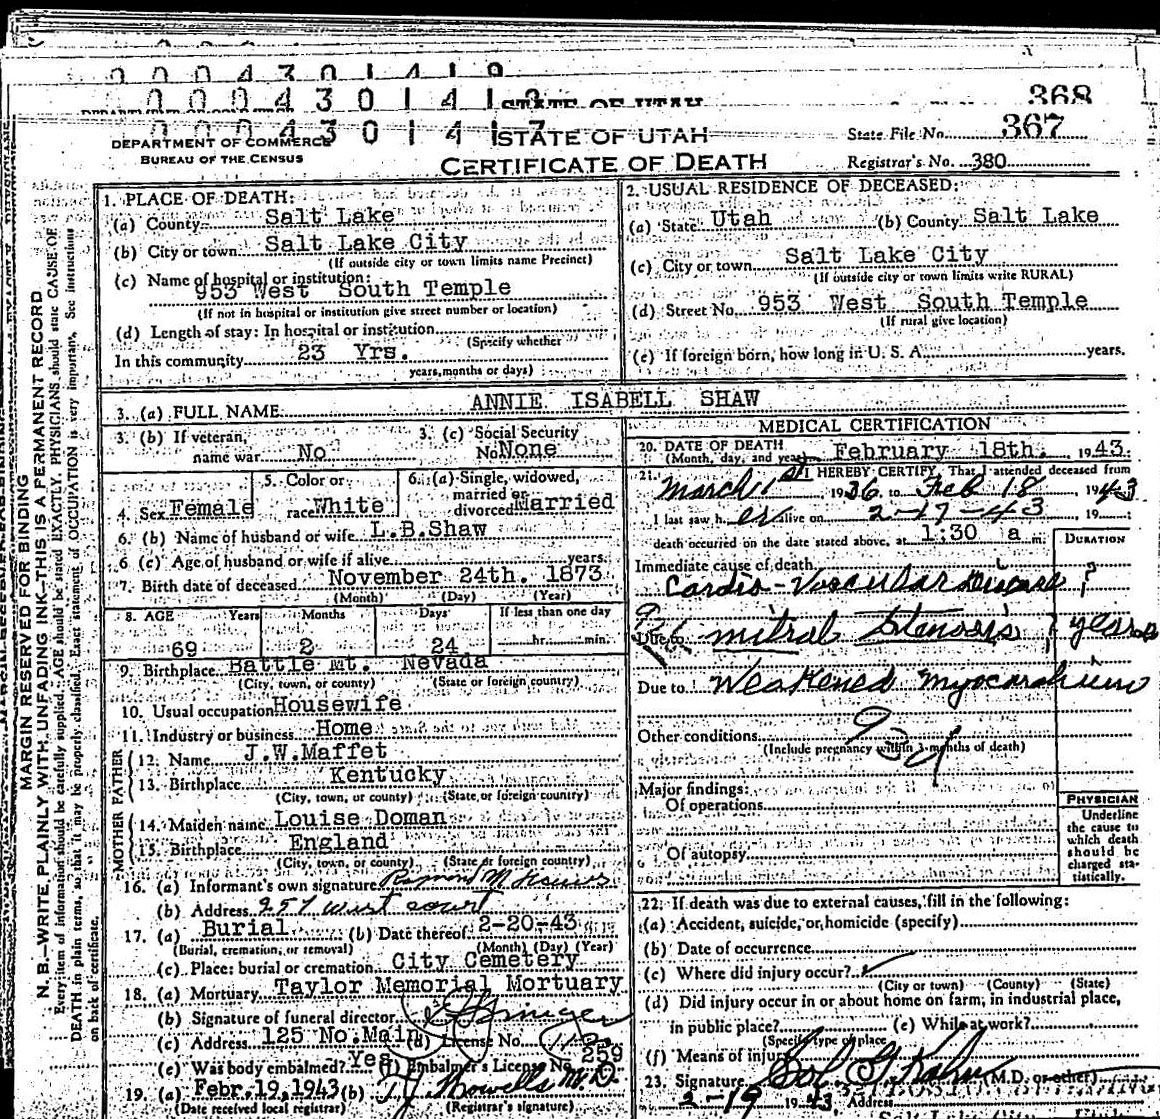 0 0 0 4 3 0 1 4 1 9
0 0 0 4 3 0 1 4 1 STATE OF UTAH 368
0 0 0 4 3 0 1 4 1 7
DEPARTMENT OF COMMERCE STATE OF UTAH State File No. 367
BUREAU OF THE CENSUS CERTIFICATE OF DEATH Registrar's No. 380
MARGIN RESERVED FOR BINDING
N. B.—WRITE PLAINLY WITH UNFADING INK—THIS IS A PERMANENT RECORD
Every item of information should be carefully supplied. AGE should be stated EXACTLY. PHYSICIANS should state CAUSE OF
DEATH in plain terms, so that it may be properly classified. Exact statement of OCCUPATION is very important. See instructions
on back of certificate.
1. PLACE OF DEATH:
(a) County Salt Lake
(b) City or town Salt Lake City
(If outside city or town limits name Precinct)
(c) Name of hospital or institution:
953 West South Temple
(If not in hospital or institution give street number or location)
(d) Length of stay: In hospital or institution
(Specify whether
In this community 23 Yrs.
years, months or days)
2. USUAL RESIDENCE OF DECEASED:
(a) State Utah (b) County Salt Lake
(c) City or town Salt Lake City
(If outside city or town limits write RURAL)
(d) Street No. 953 West South Temple
(If rural give location)
(e) If foreign born, how long in U. S. A. years.
3. (a) FULL NAME ANNIE ISABELL SHAW
3. (b) If veteran, name war No
3. (c) Social Security No. None
4. Sex Female
5. Color or race White
6. (a) Single, widowed, married or divorced Married
6. (b) Name of husband or wife L.B.Shaw
6 (c) Age of husband or wife if alive years.
7. Birth date of deceased November 24th. 1873
(Month) (Day) (Year)
8. AGE Years Months Days If less than one day
69 2 24 hr. min.
9. Birthplace Battle Mt. Nevada
(City, town, or county) (State or foreign country)
10. Usual occupation Housewife
11. Industry or business Home
FATHER
12. Name J.W.Maffet
13. Birthplace Kentucky
(City, town, or county) (State or foreign country)
MOTHER
14. Maiden name Louise Doman
15. Birthplace England
(City, town, or county) (State or foreign country)
16. (a) Informant's own signature
(b) Address 957 west court
17. (a) Burial (b) Date thereof 2-20-43
(Burial, cremation, or removal) (Month) (Day) (Year)
(c) Place: burial or cremation City Cemetery
18. (a) Mortuary Taylor Memorial Mortuary
(b) Signature of funeral director
(c) Address 125 No. Main (d) License No.
(e) Was body embalmed? Yes (f) Embalmer's License No. 259
19. (a) Febr.19,1943 (b) T. J. Howells M.D.
(Date received local registrar) (Registrar's signature)
MEDICAL CERTIFICATION
20. DATE OF DEATH February 18th. 1943.
(Month, day, and year)
21. I HEREBY CERTIFY, That I attended deceased from
March 1st 1936 to Feb 18 1943
I last saw her alive on 2-17-43, 19
death occurred on the date stated above, at 1:30 a m.
DURATION
Immediate cause of death
Cardio-Vascular Disease ?
Due to mitral stenosis ? years
Due to Weakened myocardium
Other conditions
(Include pregnancy within 3 months of death)
Major findings:
Of operations
Of autopsy
PHYSICIAN
Underline
the cause to
which death
should be
charged sta-
tistically.
22. If death was due to external causes, fill in the following:
(a) Accident, suicide, or homicide (specify)
(b) Date of occurrence
(c) Where did injury occur?
(City or town) (County) (State)
(d) Did injury occur in or about home on farm, in industrial place,
in public place? (e) While at work?
(Specify type of place
(f) Means of injury
23. Signature Sol G Kahn (M.D. or other)
2-19 1943 Address